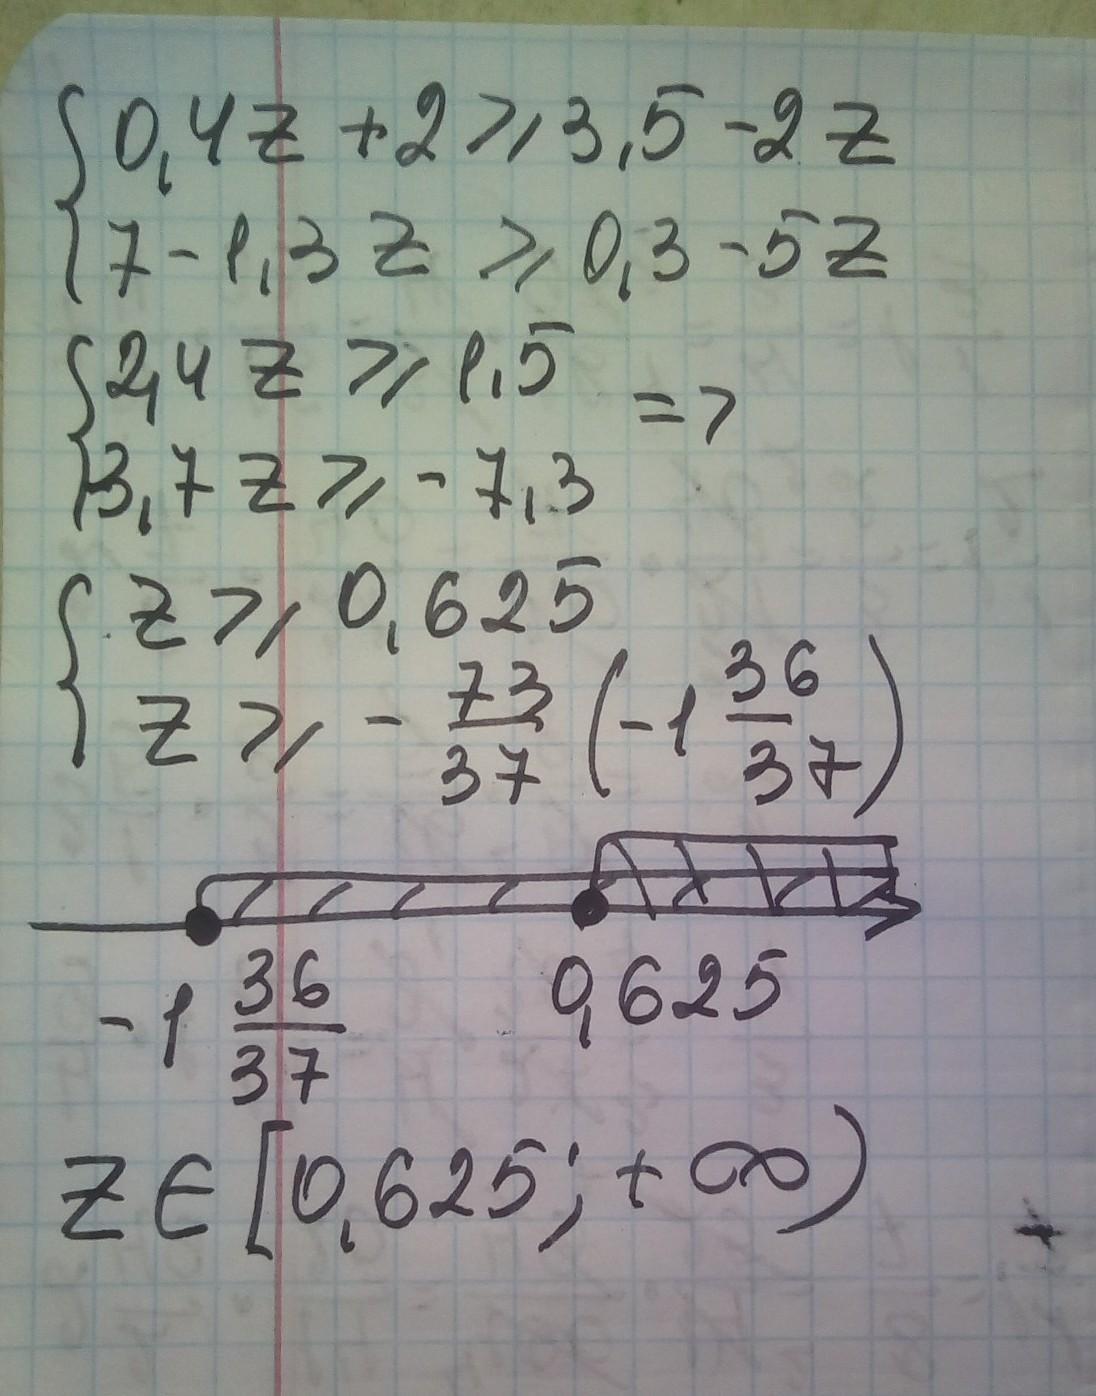 {0,4z + 2 ⩾ 3,5 - 2z
7 - 1,3z ⩾ 0,3 - 5z
{2,4z ⩾ 1,5 =>
3,7z ⩾ - 7,3
{z ⩾ 0,625
z ⩾ - 73/37 (-1 36/37)
-1 36/37 0,625
z ∈ [0,625; + ∞)